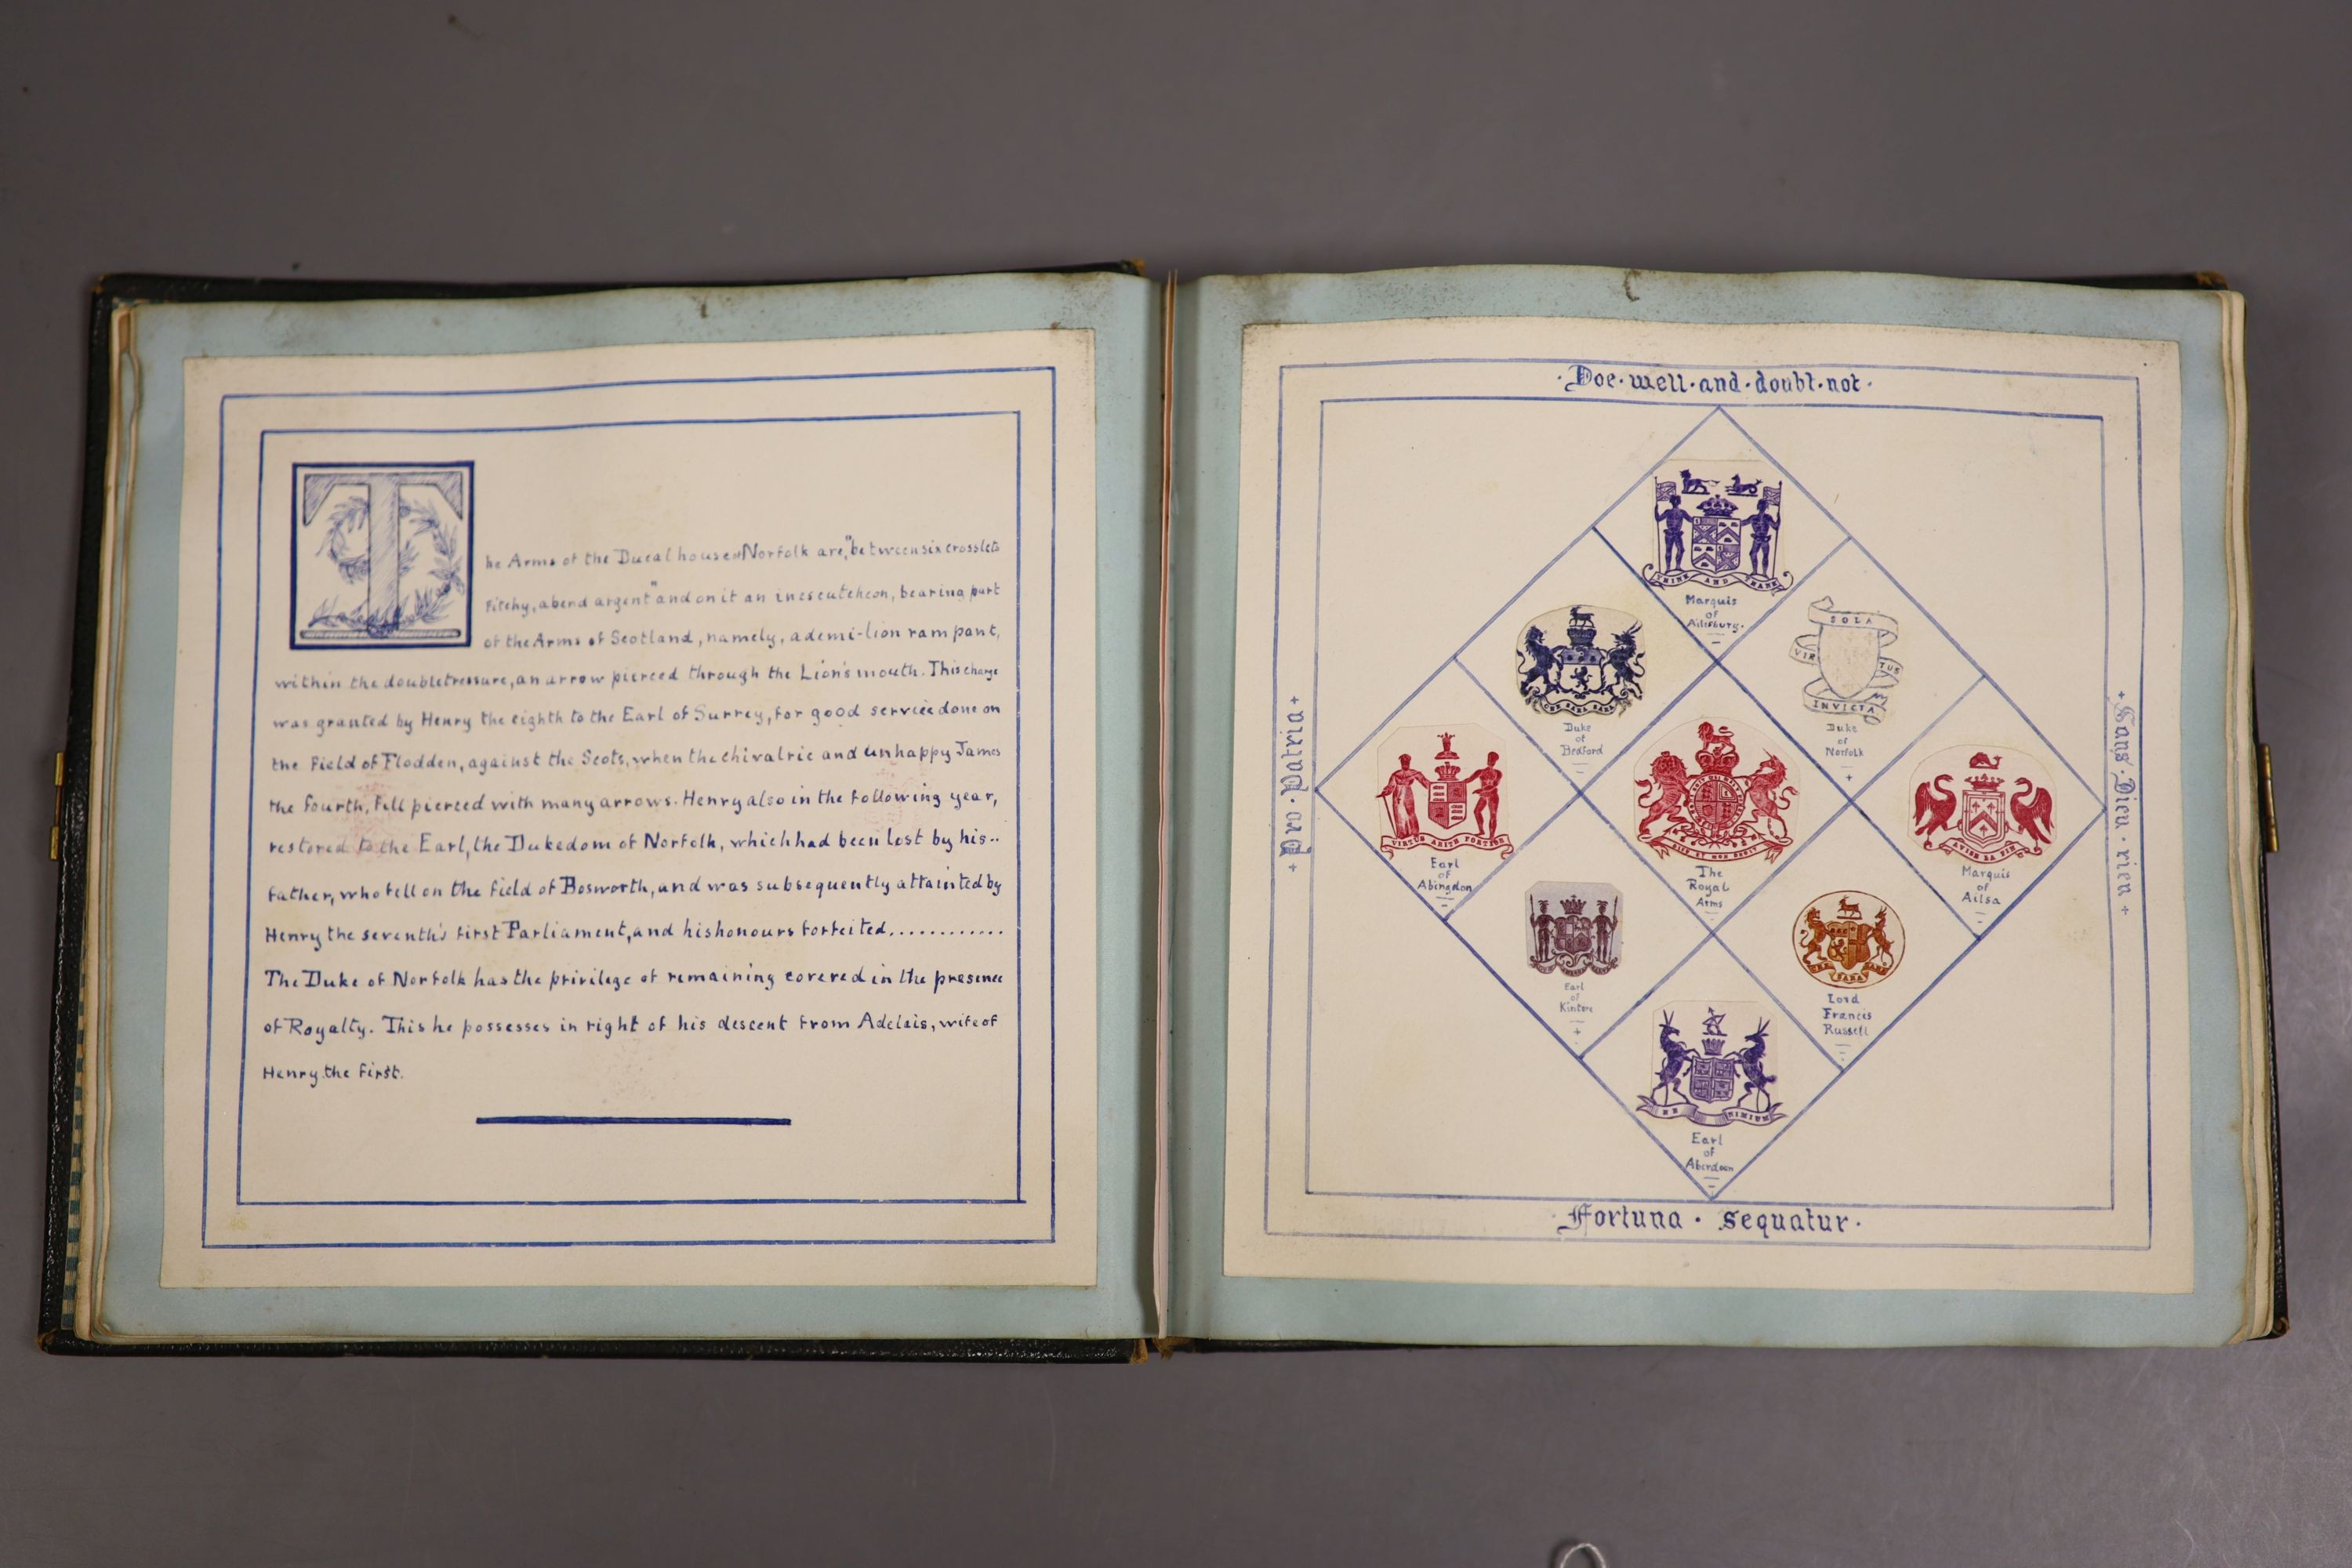 The Arms of the Ducal house of Norfolk are, "between six crosslets
Fitchy, a bend argent" and on it an inescutcheon, bearing part
of the Arms of Scotland, namely, a demi-lion rampant,
within the double tressure, an arrow pierced through the Lion's mouth. This charge
was granted by Henry the eighth to the Earl of Surrey, for good service done on
the Field of Flodden, against the Scots, when the chivalric and unhappy James
the fourth, fell pierced with many arrows. Henry also in the following year,
restored to the Earl, the Dukedom of Norfolk, which had been lost by his..
father, who fell on the field of Bosworth, and was subsequently attainted by
Henry the seventh's first Parliament, and his honours forfeited............
The Duke of Norfolk has the privilege of remaining covered in the presence
of Royalty. This he possesses in right of his descent from Adelais, wife of
Henry the first.
· Doe · well · and · doubt · not ·
+ Pro · Patria +
+ Sans · Dieu · rien +
THINK AND THANK
Marquis
of
Ailesburg.
CHE SARA SARA
Duke
of
Bedford
SOLA
VIRTUS
INVICTA
Duke
of
Norfolk
VIRTUS ARIETE FORTIOR
Earl
of
Abingdon
DIEU ET MON DROIT
The
Royal
Arms
AVISE LA FIN
Marquis
of
Ailsa
Earl
of
Kintore
CHE SARA SARA
Lord
Francis
Russell
NE NIMIUM
Earl
of
Aberdeen
· Fortuna · sequatur ·